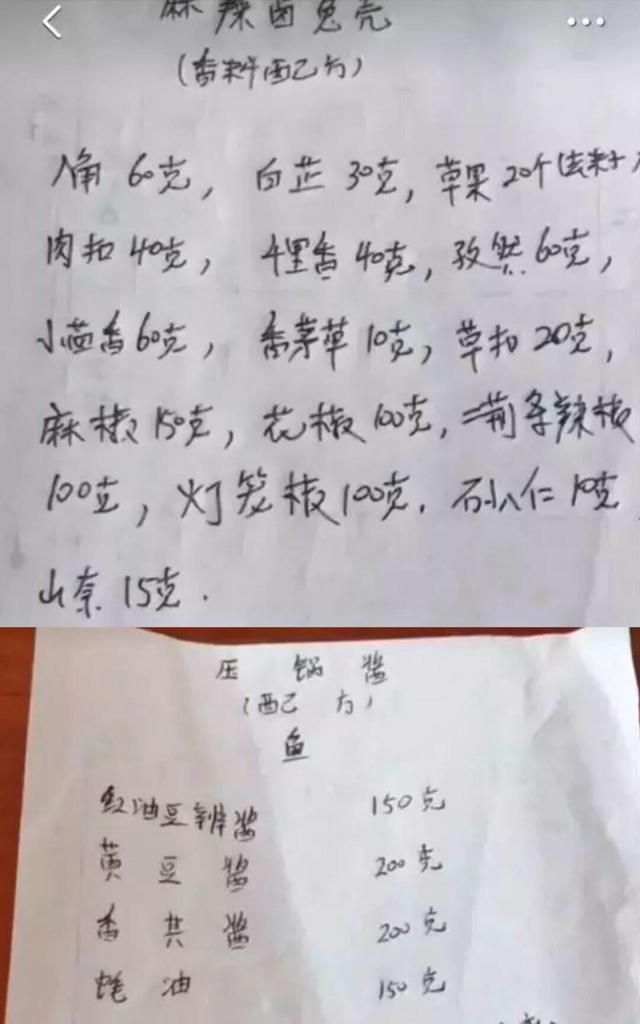 麻辣卤兔壳
(香料配方)
八角 60克， 白芷 30克， 草果 20个(去籽
肉扣 40克， 千里香 40克， 孜然 60克，
小茴香 60克， 香茅草 10克， 草扣 20克，
麻椒 150克， 花椒 100克， 二荆条辣椒
100克， 灯笼椒 100克. 砂仁 10克
山奈 15克.
压锅酱
(配方)
鱼
红油豆辨酱 150克
黄豆酱 200克
香共酱 200克
蚝油 150克